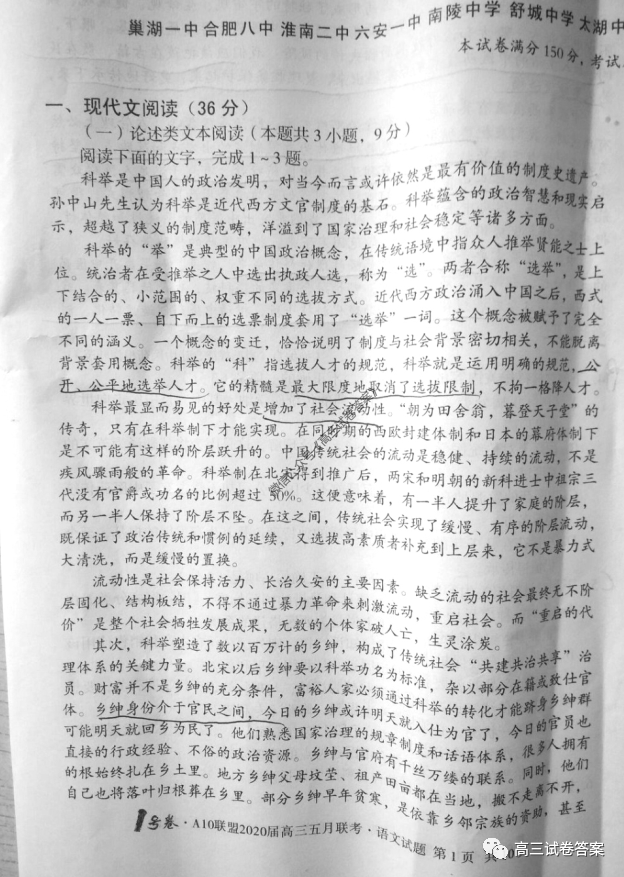 巢湖一中 合肥八中 淮南二中 六安一中 南陵中学 舒城中学 太湖中
本试卷满分150分，考试
一、现代文阅读（36分）
（一）论述类文本阅读（本题共3小题，9分）
阅读下面的文字，完成1~3题。
科举是中国人的政治发明，对当今而言或许依然是最有价值的制度史遗产。
孙中山先生认为科举是近代西方文官制度的基石。科举蕴含的政治智慧和现实启
示，超越了狭义的制度范畴，洋溢到了国家治理和社会稳定等诸多方面。
科举的“举”是典型的中国政治概念，在传统语境中指众人推举贤能之士上
位。统治者在受推举之人中选出执政人选，称为“选”。两者合称“选举”，是上
下结合的、小范围的、权重不同的选拔方式。近代西方政治涌入中国之后，西式
的一人一票、自下而上的选票制度套用了“选举”一词。这个概念被赋予了完全
不同的涵义。一个概念的变迁，恰恰说明了制度与社会背景密切相关，不能脱离
背景套用概念。科举的“科”指选拔人才的规范，科举就是运用明确的规范，公
开、公平地选举人才。它的精髓是最大限度地取消了选拔限制，不拘一格降人才。
科举最显而易见的好处是增加了社会流动性。“朝为田舍翁，暮登天子堂”的
传奇，只有在科举制下才能实现。在同时期的西欧封建体制和日本的幕府体制下
是不可能有这样的阶层跃升的。中国传统社会的流动是稳健、持续的流动，不是
疾风骤雨般的革命。科举制在北宋得到推广后，两宋和明朝的新科进士中祖宗三
代没有官爵或功名的比例超过50%。这便意味着，有一半人提升了家庭的阶层，
而另一半人保持了阶层不坠。在这之间，传统社会实现了缓慢、有序的阶层流动，
既保证了政治传统和惯例的延续，又选拔高素质者补充到上层来，它不是暴力式
大清洗，而是缓慢的置换。
流动性是社会保持活力、长治久安的主要因素。缺乏流动的社会最终无不阶
层固化、结构板结，不得不通过暴力革命来刺激流动，重启社会。而“重启的代
价”是整个社会牺牲发展成果，无数的个体家破人亡，生灵涂炭。
其次，科举塑造了数以百万计的乡绅，构成了传统社会“共建共治共享”治
理体系的关键力量。北宋以后乡绅要以科举功名为标准，杂以部分在籍或致仕官
员。财富并不是乡绅的充分条件，富裕人家必须通过科举的转化才能跻身乡绅群
体。乡绅身份介于官民之间，今日的乡绅或许明天就入仕为官了，今日的官员也
可能明天就回乡为民了。他们熟悉国家治理的规章制度和话语体系，很多人拥有
直接的行政经验、不俗的政治资源。乡绅与官府有千丝万缕的联系。同时，他们
的根始终扎在乡土里。地方乡绅父母坟茔、祖产田亩都在当地，搬不走离不开，
自己也将落叶归根葬在乡里。部分乡绅早年贫寒，是依靠乡邻宗族的资助，甚至
1号卷·A10联盟2020届高三五月联考·语文试题 第1页 共10
高三试卷答案